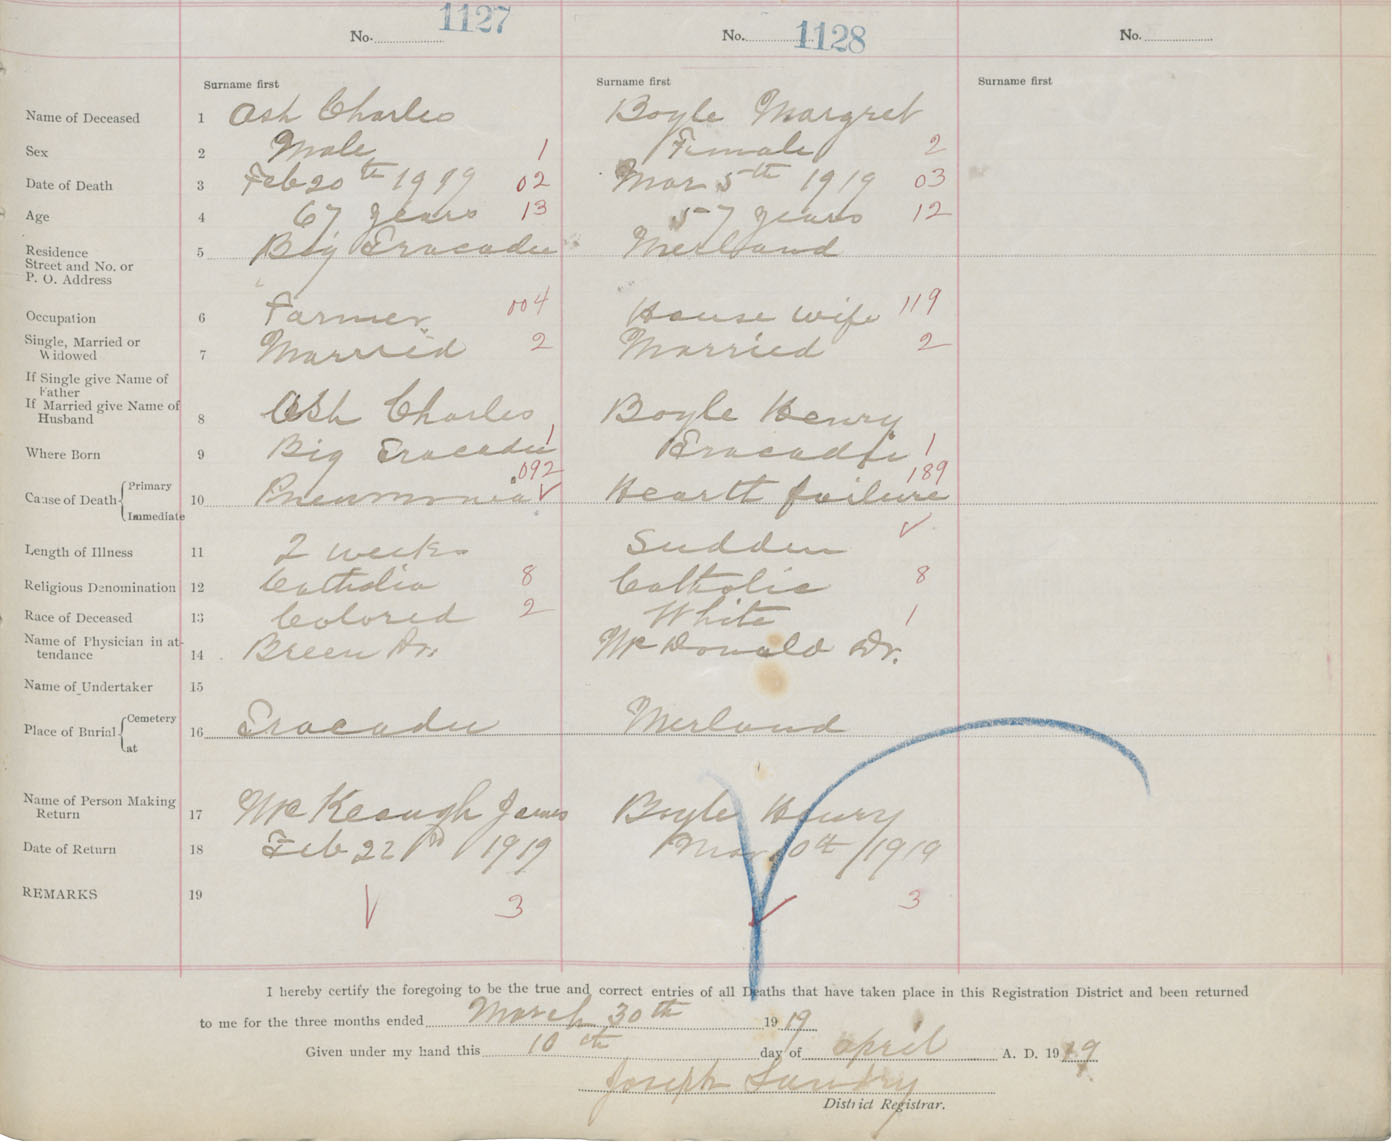 No. 1127 No. 1128 No.
Surname first Surname first Surname first
Name of Deceased 1 Ash Charles Boyle Margret
Sex 2 Male 1 Female 2
Date of Death 3 Feb 20th 1919 02 Mar 5th 1919 03
Age 4 67 years 13 57 years 12
Residence 5 Big Tracadie Merland
Street and No. or
P. O. Address
Occupation 6 Farmer 004 House wife 119
Single, Married or
Widowed 7 Married 2 Married 2
If Single give Name of
Father
If Married give Name of
Husband 8 Ash Charles Boyle Henry
Where Born 9 Big Tracadie 1 Tracadie 1
092 189
Cause of Death { Primary
10 Pneumonia Heartt failure
Immediate
Length of Illness 11 2 weeks Sudden
Religious Denomination 12 Catholic 8 Catholic 8
Race of Deceased 13 Colored 2 White 1
Name of Physician in at-
tendance 14 Breen Dr. McDonald Dr.
Name of Undertaker 15
Place of Burial { Cemetery
16 Tracadie Merland
at
Name of Person Making
Return 17 McKeough James Boyle Henry
Date of Return 18 Feb 22 1919 Mar 10th 1919
REMARKS 19 3 3
I hereby certify the foregoing to be the true and correct entries of all Deaths that have taken place in this Registration District and been returned
to me for the three months ended March 30th 1919
Given under my hand this 10th day of April A. D. 1919
Joseph
District Registrar.